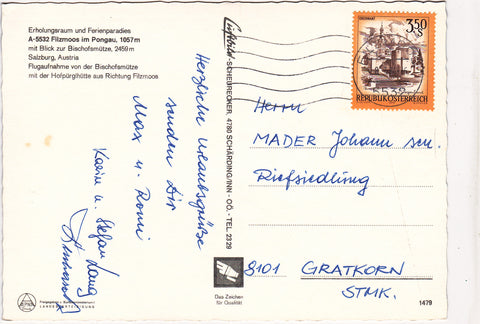 Erholungsraum und Ferienparadies
A-5532 Filzmoos im Pongau, 1057m
mit Blick zur Bischofsmütze, 2459 m
Salzburg, Austria
Flugaufnahme von der Bischofsmütze
mit der Hofpürglhütte aus Richtung Filzmoos
Herzliche Urlaubsgrüße
senden Dir
Max u. Romi
Karin u. Stefan Lang
Luftbild-SCHEURECKER, 4780 SCHÄRDING/INN - OÖ. - TEL. 2329
3.50
S
REPUBLIK ÖSTERREICH
5532
Herrn
MADER Johann sen.
Riefsiedlung
8101 GRATKORN
STMK.
Das Zeichen
für Qualität
1479